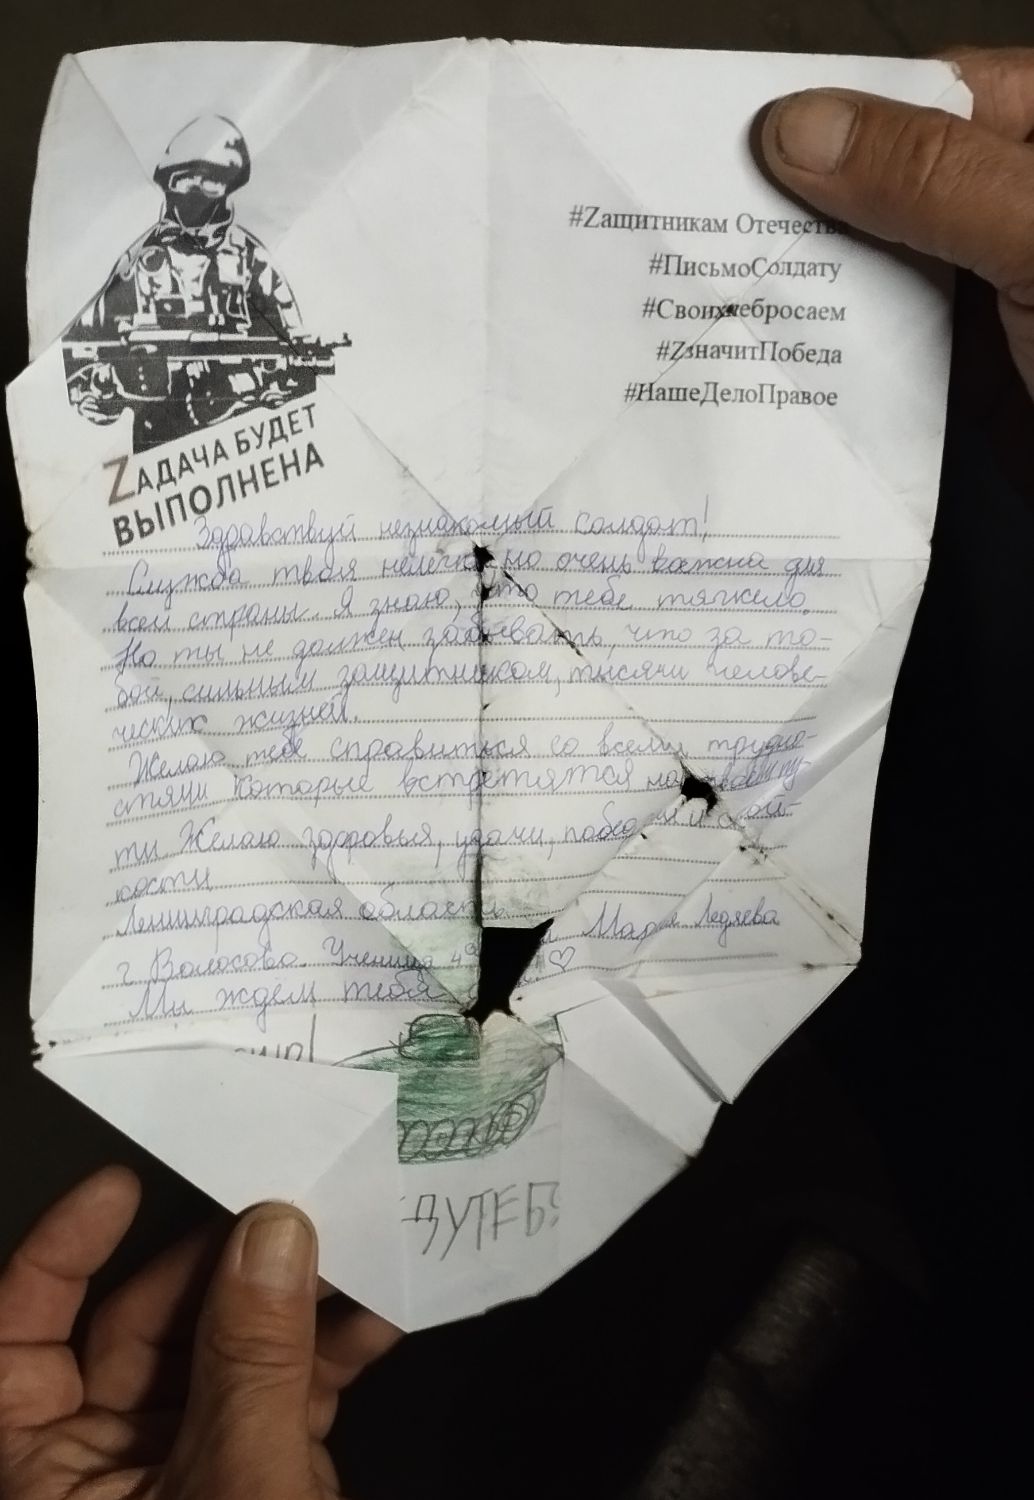 #Zащитникам Отечества
#ПисьмоСолдату
#Своихнебросаем
#ZзначитПобеда
#НашеДелоПравое
ZАДАЧА БУДЕТ
ВЫПОЛНЕНА
Здравствуй незнакомый солдат!
Служба твоя нелегка но очень важна для
всей страны. Я знаю, что тебе тяжело.
Но ты не должен забывать, что за то-
бой, сильным защитником, тысячи челове-
ческих жизней.
Желаю тебе справиться со всеми трудно-
стями которые встретятся на твоем пу-
ти Желаю здоровья, удачи, победы и стой-
кости
Ленинградская область
Мария Ледяева
г Волосово. Ученица 4
Мы ждем тебя